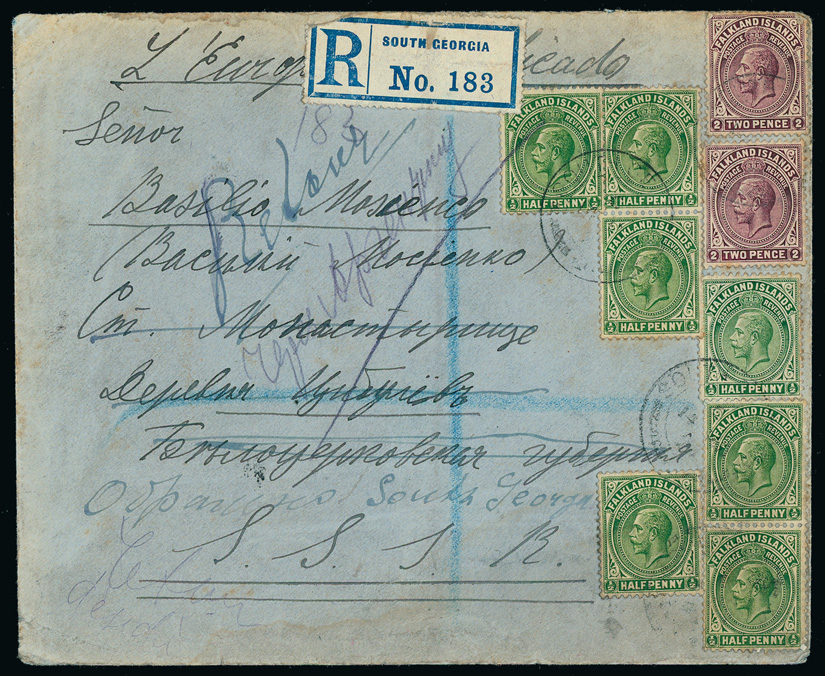 R SOUTH GEORGIA
No. 183
L'Europ
Señor
183
Basilio Mosienco
(Василий Мосиенко)
Ст. Монастырище
Деревня
Бѣлоцерковская губерния
Обратно South Georgia
S. S. S. R.
Retour
FALKLAND ISLANDS
POSTAGE REVENUE
2 TWO PENCE 2
FALKLAND ISLANDS
POSTAGE REVENUE
2 TWO PENCE 2
FALKLAND ISLANDS
POSTAGE REVENUE
½ HALF PENNY ½
FALKLAND ISLANDS
POSTAGE REVENUE
½ HALF PENNY ½
FALKLAND ISLANDS
POSTAGE REVENUE
½ HALF PENNY ½
FALKLAND ISLANDS
POSTAGE REVENUE
½ HALF PENNY ½
FALKLAND ISLANDS
POSTAGE REVENUE
½ HALF PENNY ½
FALKLAND ISLANDS
POSTAGE REVENUE
½ HALF PENNY ½
FALKLAND ISLANDS
POSTAGE REVENUE
½ HALF PENNY ½